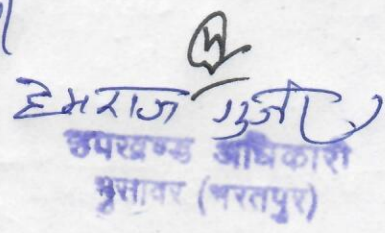 हेमराज गुर्जर
उपखण्ड अधिकारी
भुसावर (भरतपुर)